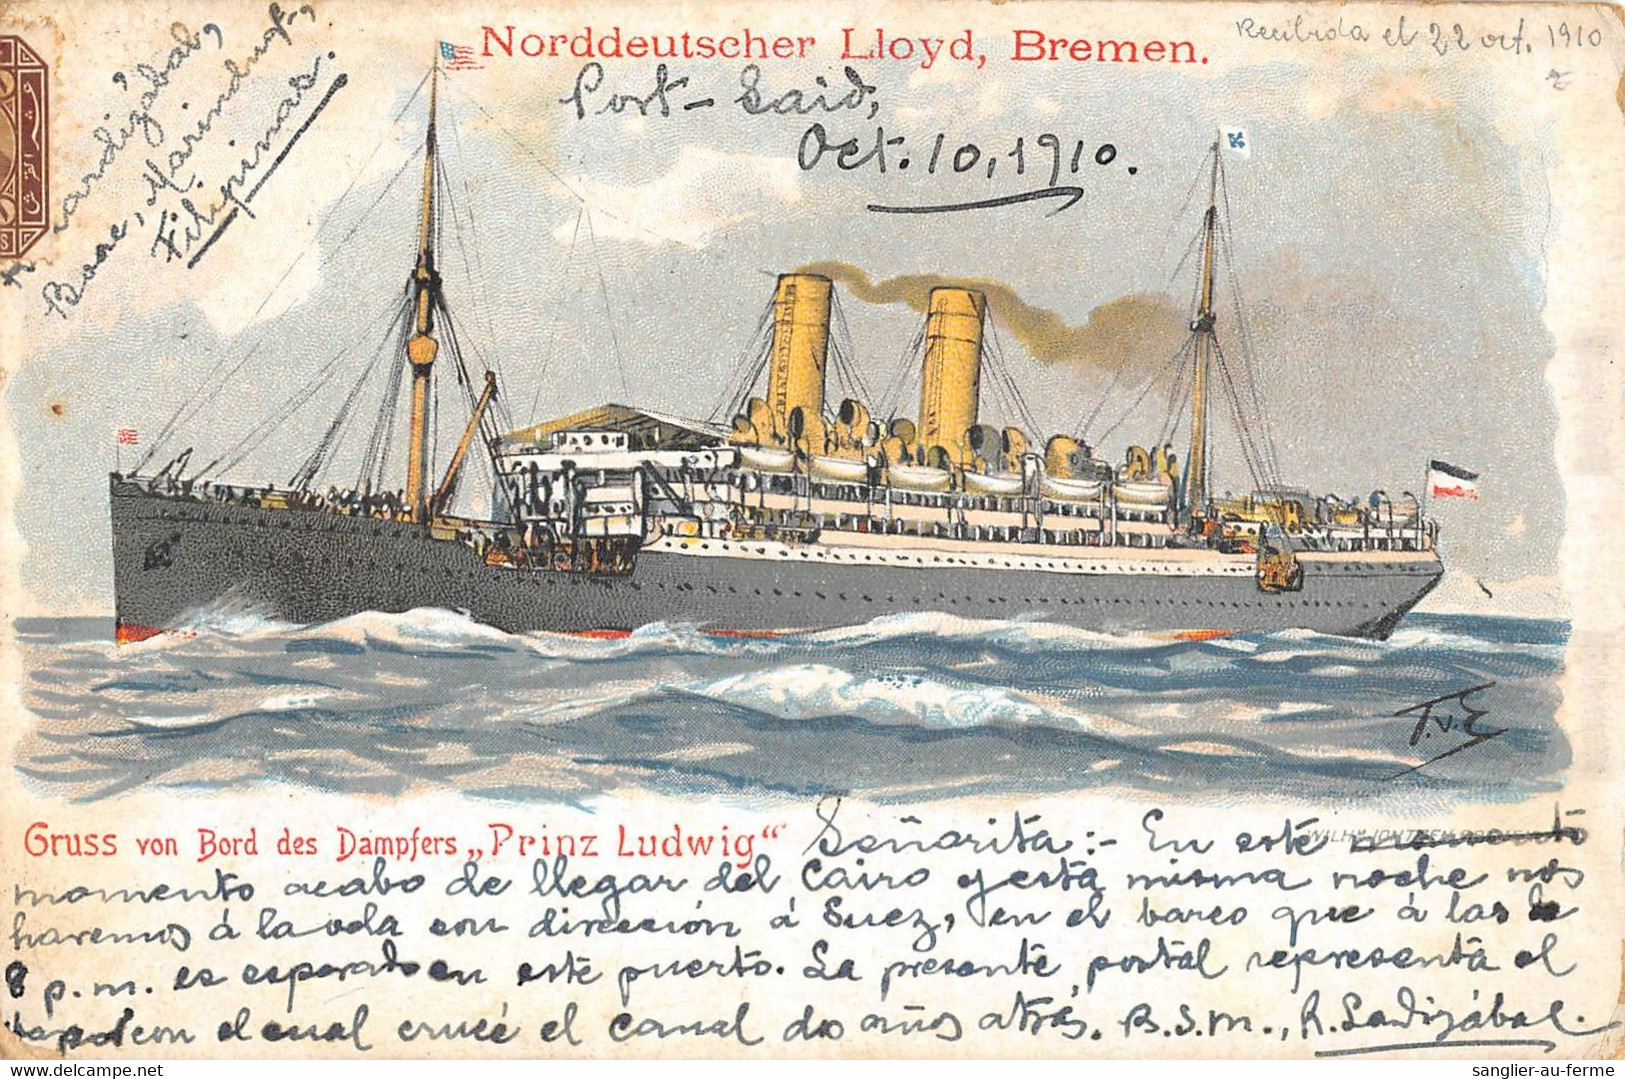 Norddeutscher Lloyd, Bremen.
Recibida el 22 oct. 1910
Port-Said,
Oct. 10, 1910.
Boac, Marinduque,
Filipinas.
T.v.E
Gruss von Bord des Dampfers „Prinz Ludwig“
Señorita:- En este momento
momento acabo de llegar del Cairo y esta misma noche nos
haremos á la vela con dirección á Suez, en el barco que á las
8 p.m. es esperado en este puerto. La presente postal representa el
vapor con el cual crucé el canal dos años atrás. B.S.M., R. Ladizábal.
sanglier-au-ferme